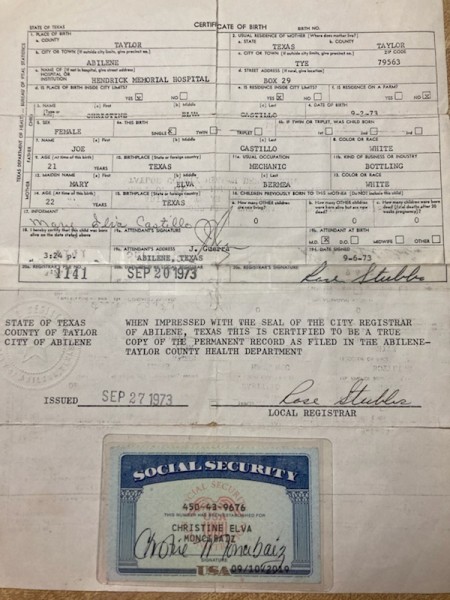 STATE OF TEXAS CERTIFICATE OF BIRTH BIRTH NO.
1. PLACE OF BIRTH
a. COUNTY
TAYLOR
2. USUAL RESIDENCE OF MOTHER (Where does mother live?)
a. STATE b. COUNTY
TEXAS TAYLOR
b. CITY OR TOWN (If outside city limits, give precinct no.)
ABILENE
c. CITY OR TOWN (If outside city limits, give precinct no.) ZIP CODE
TYE 79563
c. NAME OF (If not in hospital, give street address)
HOSPITAL OR
INSTITUTION
HENDRICK MEMORIAL HOSPITAL
d. STREET ADDRESS (If rural, give location)
BOX 29
d. IS PLACE OF BIRTH INSIDE CITY LIMITS?
YES NO
e. IS RESIDENCE INSIDE CITY LIMITS?
YES NO
f. IS RESIDENCE ON A FARM?
YES NO
3. NAME (a) First (b) Middle (c) Last
CHRISTINE ELVA CASTILLO
4. DATE OF BIRTH
9-3-73
5. SEX
FEMALE
6a. THIS BIRTH
SINGLE TWIN TRIPLET
6b. IF TWIN OR TRIPLET, WAS CHILD BORN
1st 2nd 3rd
7. NAME (a) First (b) Middle (c) Last
JOE CASTILLO
8. COLOR OR RACE
WHITE
9. AGE (At time of this birth)
21 YEARS
10. BIRTHPLACE (State or foreign country)
TEXAS
11a. USUAL OCCUPATION
MECHANIC
11b. KIND OF BUSINESS OR INDUSTRY
BOTTLING
12. MAIDEN NAME (a) First (b) Middle (c) Last
MARY ELVA BERMEA
13. COLOR OR RACE
WHITE
14. AGE (At time of this birth)
22 YEARS
15. BIRTHPLACE (State or foreign country)
TEXAS
16. CHILDREN PREVIOUSLY BORN TO THIS MOTHER (Do NOT include this birth)
0 0 0
17. INFORMANT
Mary Elva Castillo
18. I hereby certify that this child was born alive on the date stated above
3:24 p.
19a. ATTENDANT'S SIGNATURE
J. Guerra
19b. ATTENDANT AT BIRTH
M.D. D.O. MIDWIFE OTHER
19c. ATTENDANT'S ADDRESS
ABILENE, TEXAS
19d. DATE SIGNED
9-6-73
1141
SEP 20 1973
Rose Stubbs
STATE OF TEXAS
COUNTY OF TAYLOR
CITY OF ABILENE
WHEN IMPRESSED WITH THE SEAL OF THE CITY REGISTRAR
OF ABILENE, TEXAS THIS IS CERTIFIED TO BE A TRUE
COPY OF THE PERMANENT RECORD AS FILED IN THE ABILENE-
TAYLOR COUNTY HEALTH DEPARTMENT
ISSUED SEP 27 1973
Rose Stubbs
LOCAL REGISTRAR
SOCIAL SECURITY
450-43-9676
THIS NUMBER HAS BEEN ESTABLISHED FOR
CHRISTINE ELVA
MONCIBAIZ
SIGNATURE
USA 09/10/2019